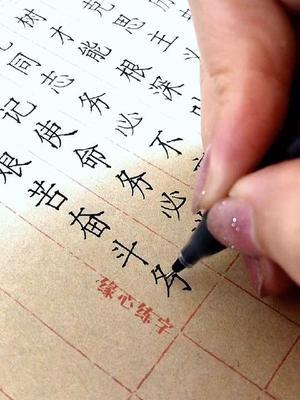 克思主
树才能根深
同志务必不
记使命务必
艰苦奋斗务
缘心练字